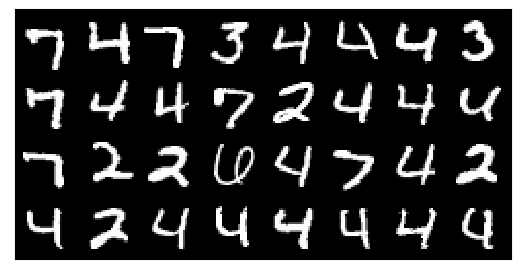 7 4 7 3 4 4 4 3
7 4 4 7 2 4 4 4
7 2 2 6 4 7 4 2
4 2 4 4 4 4 4 4